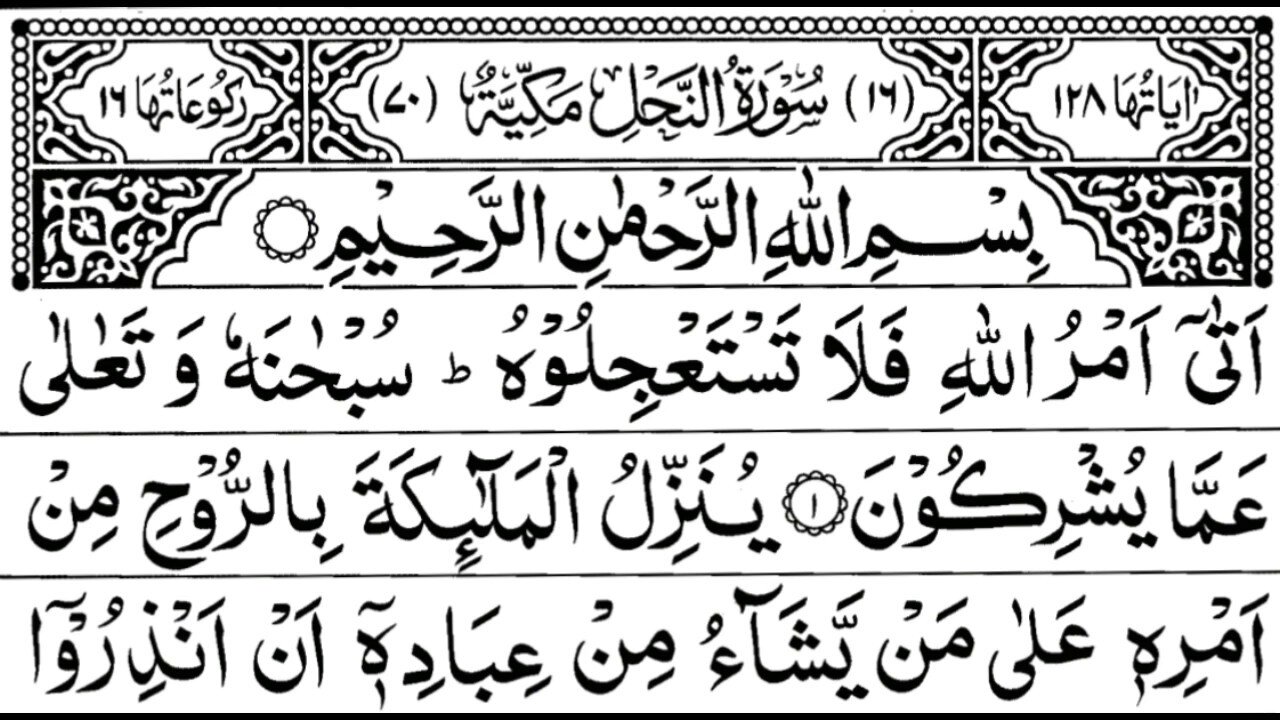 اٰيَاتُهَا ١٢٨ (١٦) سُوْرَةُ النَّحْلِ مَكِّيَّةٌ (٧٠) رُكُوْعَاتُهَا ١٦
بِسْمِ اللّٰهِ الرَّحْمٰنِ الرَّحِيْمِ
اَتٰۤى اَمْرُ اللّٰهِ فَلَا تَسْتَعْجِلُوْهُ ؕ سُبْحٰنَهٗ وَ تَعٰلٰى
عَمَّا يُشْرِكُوْنَ ١ يُنَزِّلُ الْمَلٰٓىِٕكَةَ بِالرُّوْحِ مِنْ
اَمْرِهٖ عَلٰى مَنْ يَّشَآءُ مِنْ عِبَادِهٖۤ اَنْ اَنْذِرُوْۤا